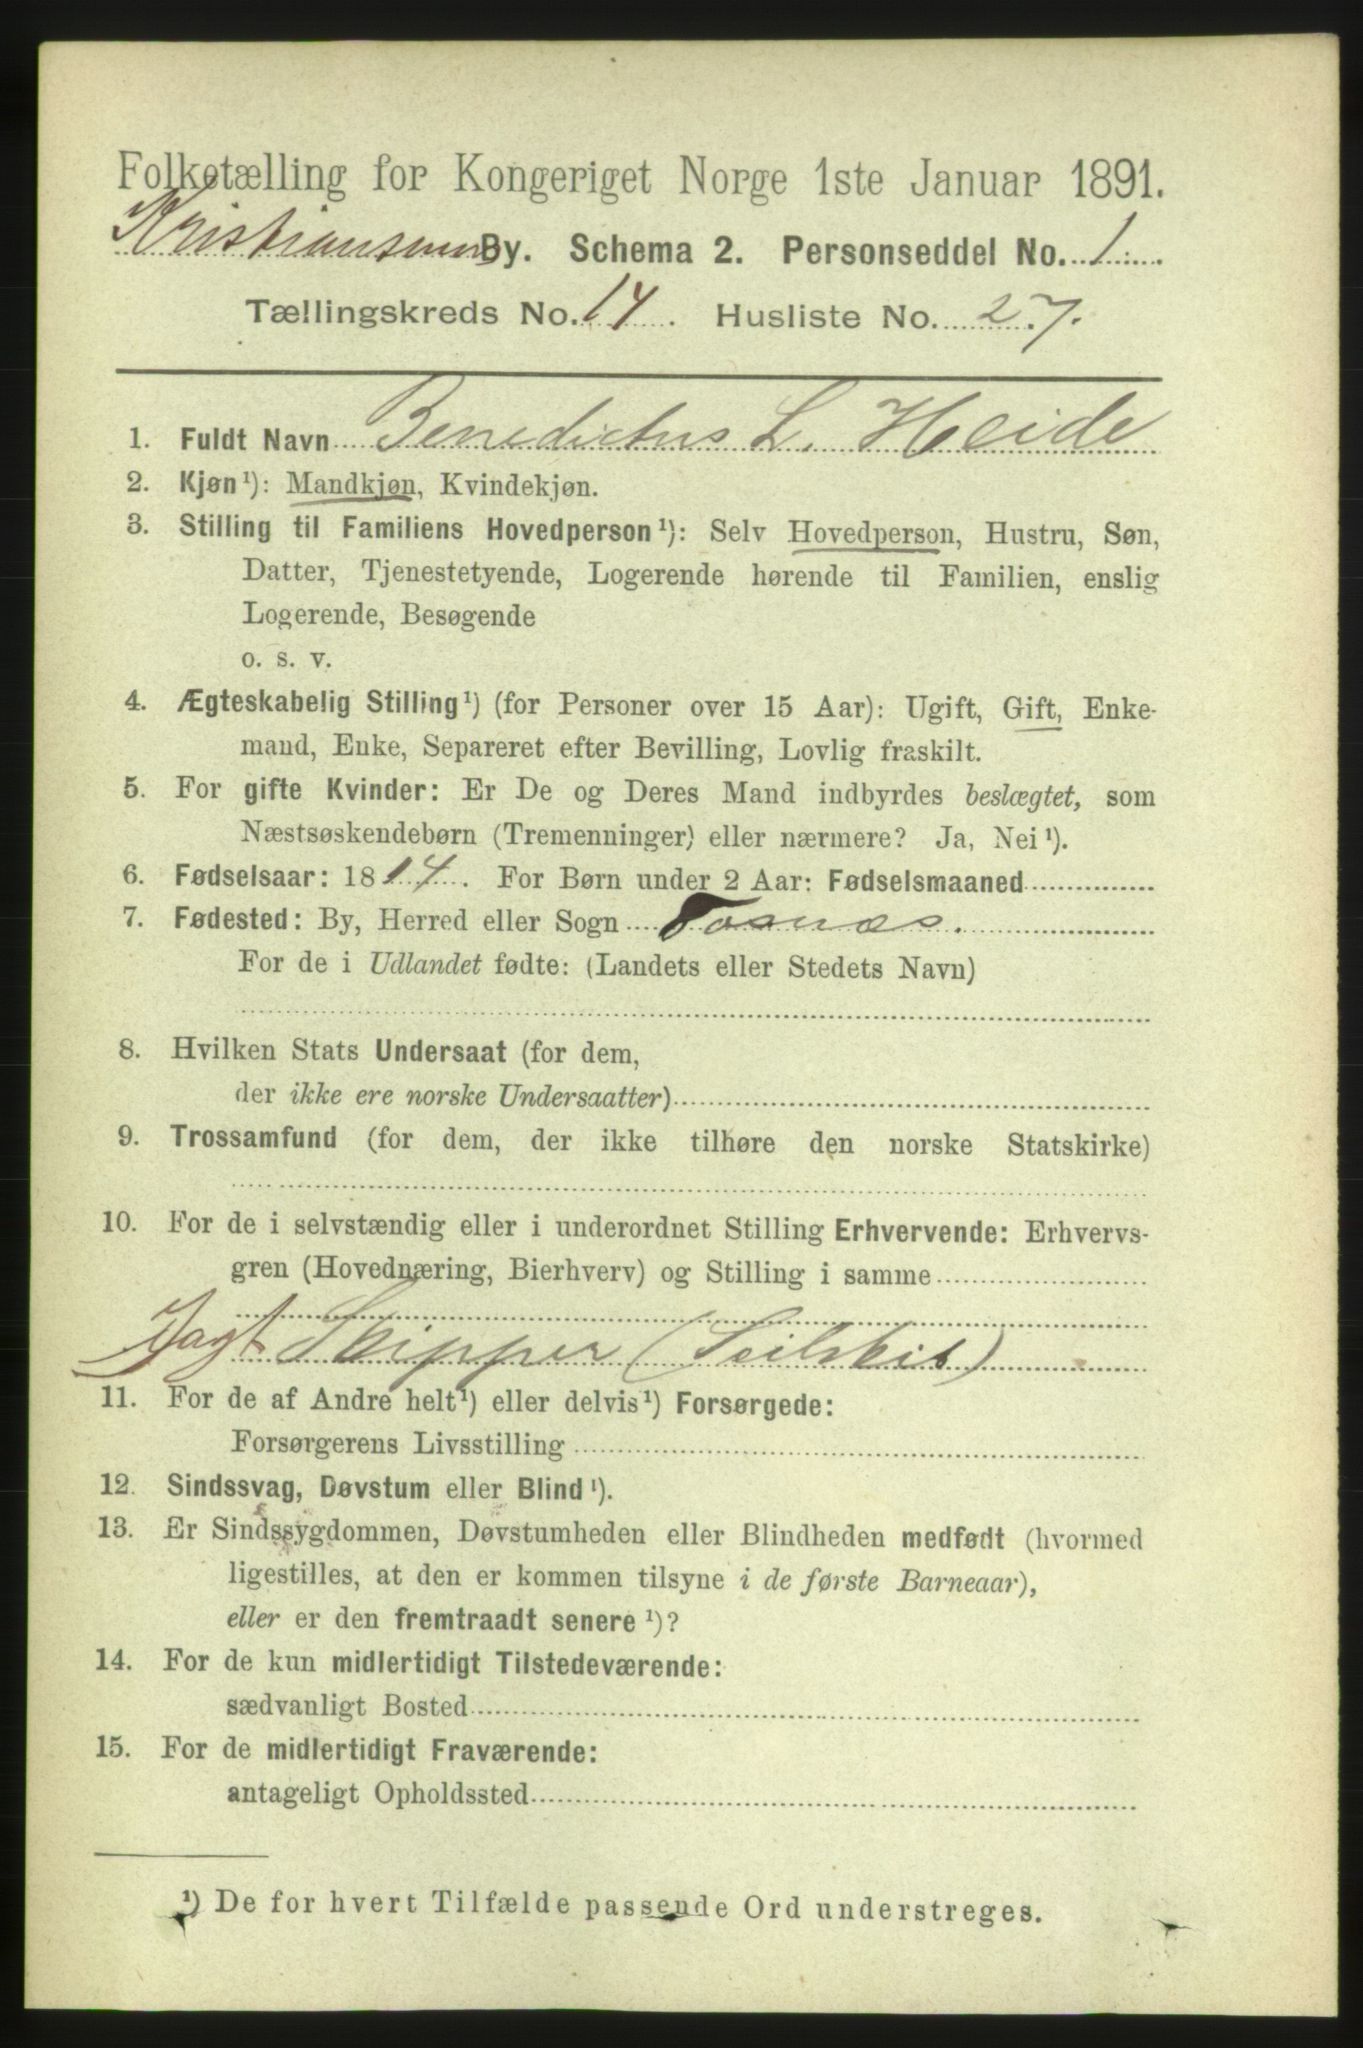 Folketælling for Kongeriget Norge 1ste Januar 1891.
Kristiansund By. Schema 2. Personseddel No. 1
Tællingskreds No. 14. Husliste No. 27.
1. Fuldt Navn Benedictus L. Heide
2. Kjøn¹): Mandkjøn, Kvindekjøn.
3. Stilling til Familiens Hovedperson¹): Selv Hovedperson, Hustru, Søn,
Datter, Tjenestetyende, Logerende hørende til Familien, enslig
Logerende, Besøgende
o. s. v.
4. Ægteskabelig Stilling¹) (for Personer over 15 Aar): Ugift, Gift, Enke-
mand, Enke, Separeret efter Bevilling, Lovlig fraskilt.
5. For gifte Kvinder: Er De og Deres Mand indbyrdes beslægtet, som
Næstsøskendebørn (Tremenninger) eller nærmere? Ja, Nei¹).
6. Fødselsaar: 1814. For Børn under 2 Aar: Fødselsmaaned
7. Fødested: By, Herred eller Sogn Fosnæs.
For de i Udlandet fødte: (Landets eller Stedets Navn)
8. Hvilken Stats Undersaat (for dem,
der ikke ere norske Undersaatter)
9. Trossamfund (for dem, der ikke tilhøre den norske Statskirke)
10. For de i selvstændig eller i underordnet Stilling Erhvervende: Erhvervs-
gren (Hovednæring, Bierhverv) og Stilling i samme
Jagt Skipper (Seilskib)
11. For de af Andre helt¹) eller delvis¹) Forsørgede:
Forsørgerens Livsstilling
12. Sindssvag, Døvstum eller Blind¹).
13. Er Sindssygdommen, Døvstumheden eller Blindheden medfødt (hvormed
ligestilles, at den er kommen tilsyne i de første Barneaar),
eller er den fremtraadt senere¹)?
14. For de kun midlertidigt Tilstedeværende:
sædvanligt Bosted
15. For de midlertidigt Fraværende:
antageligt Opholdssted
¹) De for hvert Tilfælde passende Ord understreges.